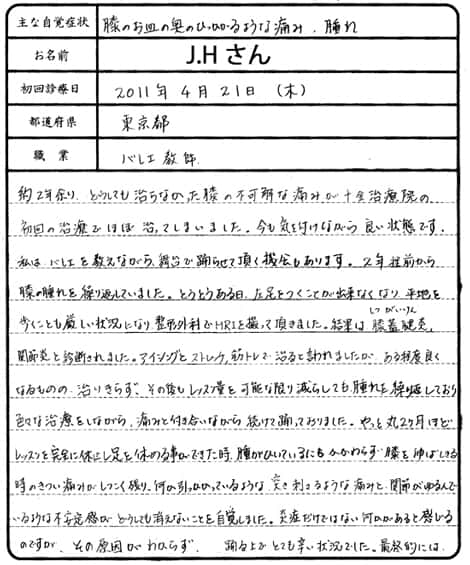 主な自覚症状 膝のお皿の奥のひっかかるような痛み、腫れ
お名前 J.Hさん
初回診療日 2011年4月21日(木)
都道府県 東京都
職業 バレエ教師
約2年余り、どうしても治らなかった膝の不可解な痛みが十全治療院の、
初回の治療でほぼ治ってしまいました。今も気を付けながら良い状態です。
私は、バレエを教えながら、舞台で踊らせて頂く機会もあります。2年程前から
膝の腫れを繰り返していました。とうとうある日、左足をつくことが出来なくなり、平地を
歩くことも厳しい状況になり整形外科でMRIを撮って頂きました。結果は膝蓋腱炎、
しつがいけん
関節炎と診断されました。アイシングとストレッチ、筋トレで治ると言われましたが、ある程度良く
なるものの、治りきらず、その後もレッスン量を可能な限り減らしても腫れを繰り返しており
色々な治療をしながら、痛みと付き合いながら続けて踊っておりました。やっと丸2ヶ月ほど
レッスンを完全に休止し足を休める事ができた時、腫れがひいているにもかかわらず膝を伸ばしきる
時のきつい痛みがしつこく残り、何か引っかかっているような、突き刺さるような痛みと、関節がゆるんで
いるような不安定感がどうしても消えないことを自覚しました。炎症だけではない何かがあると感じる
のですが、その原因がわからず、踊る上でとても辛い状況でした。最終的には、